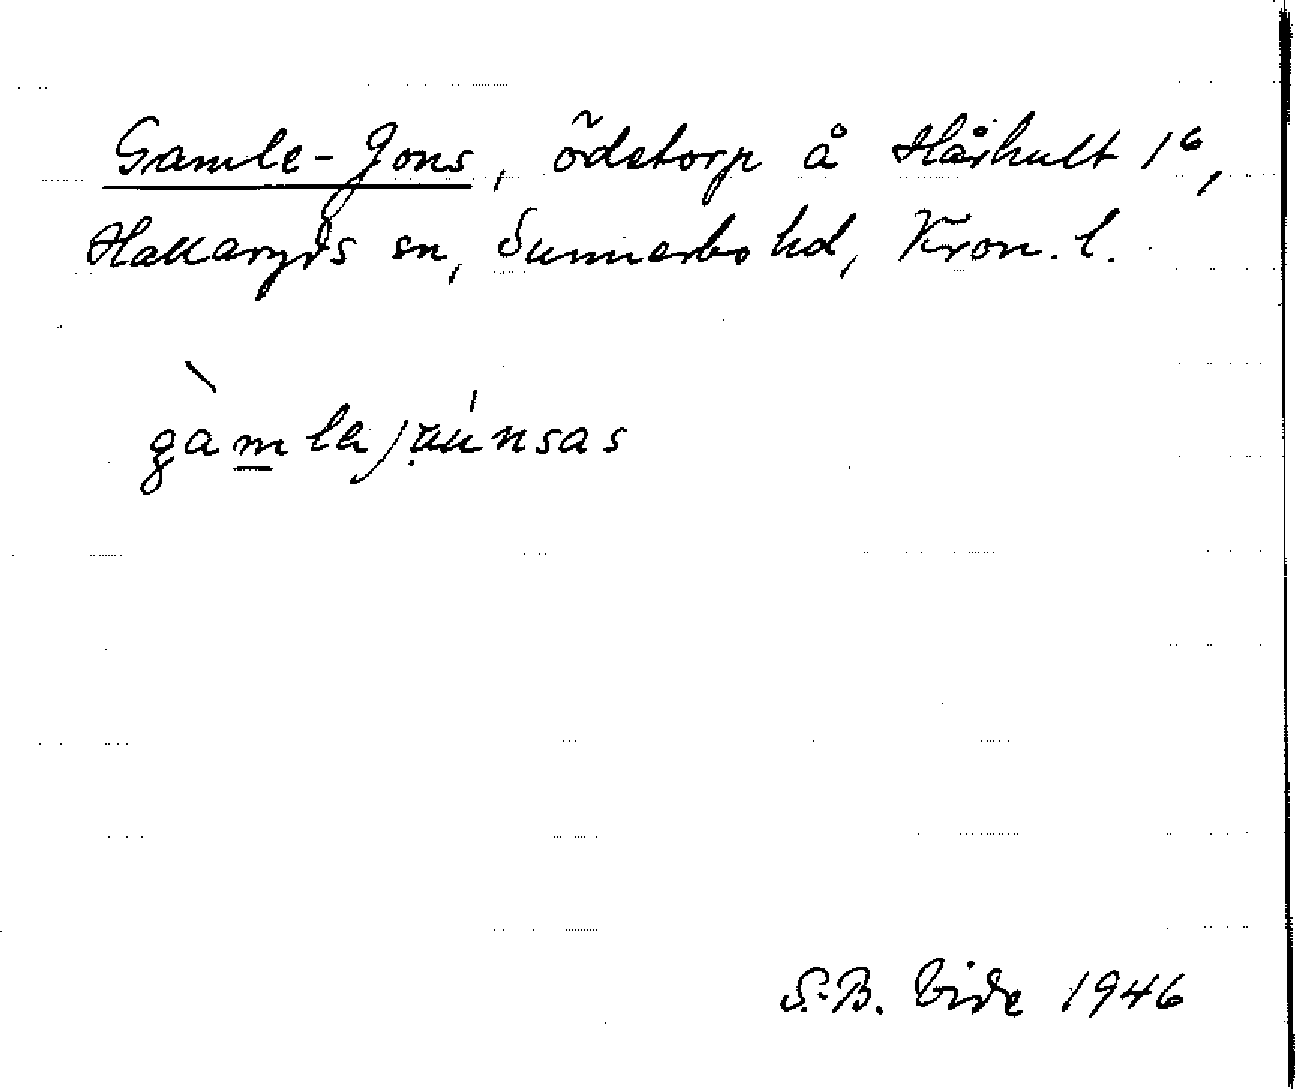 Gamle-Jons, ödetorp å Hårhult 1⁶,
Hallaryds sn, Sunnerbo hd, Kron. l.
gàmlajaúnsas
S.-B. Vide 1946